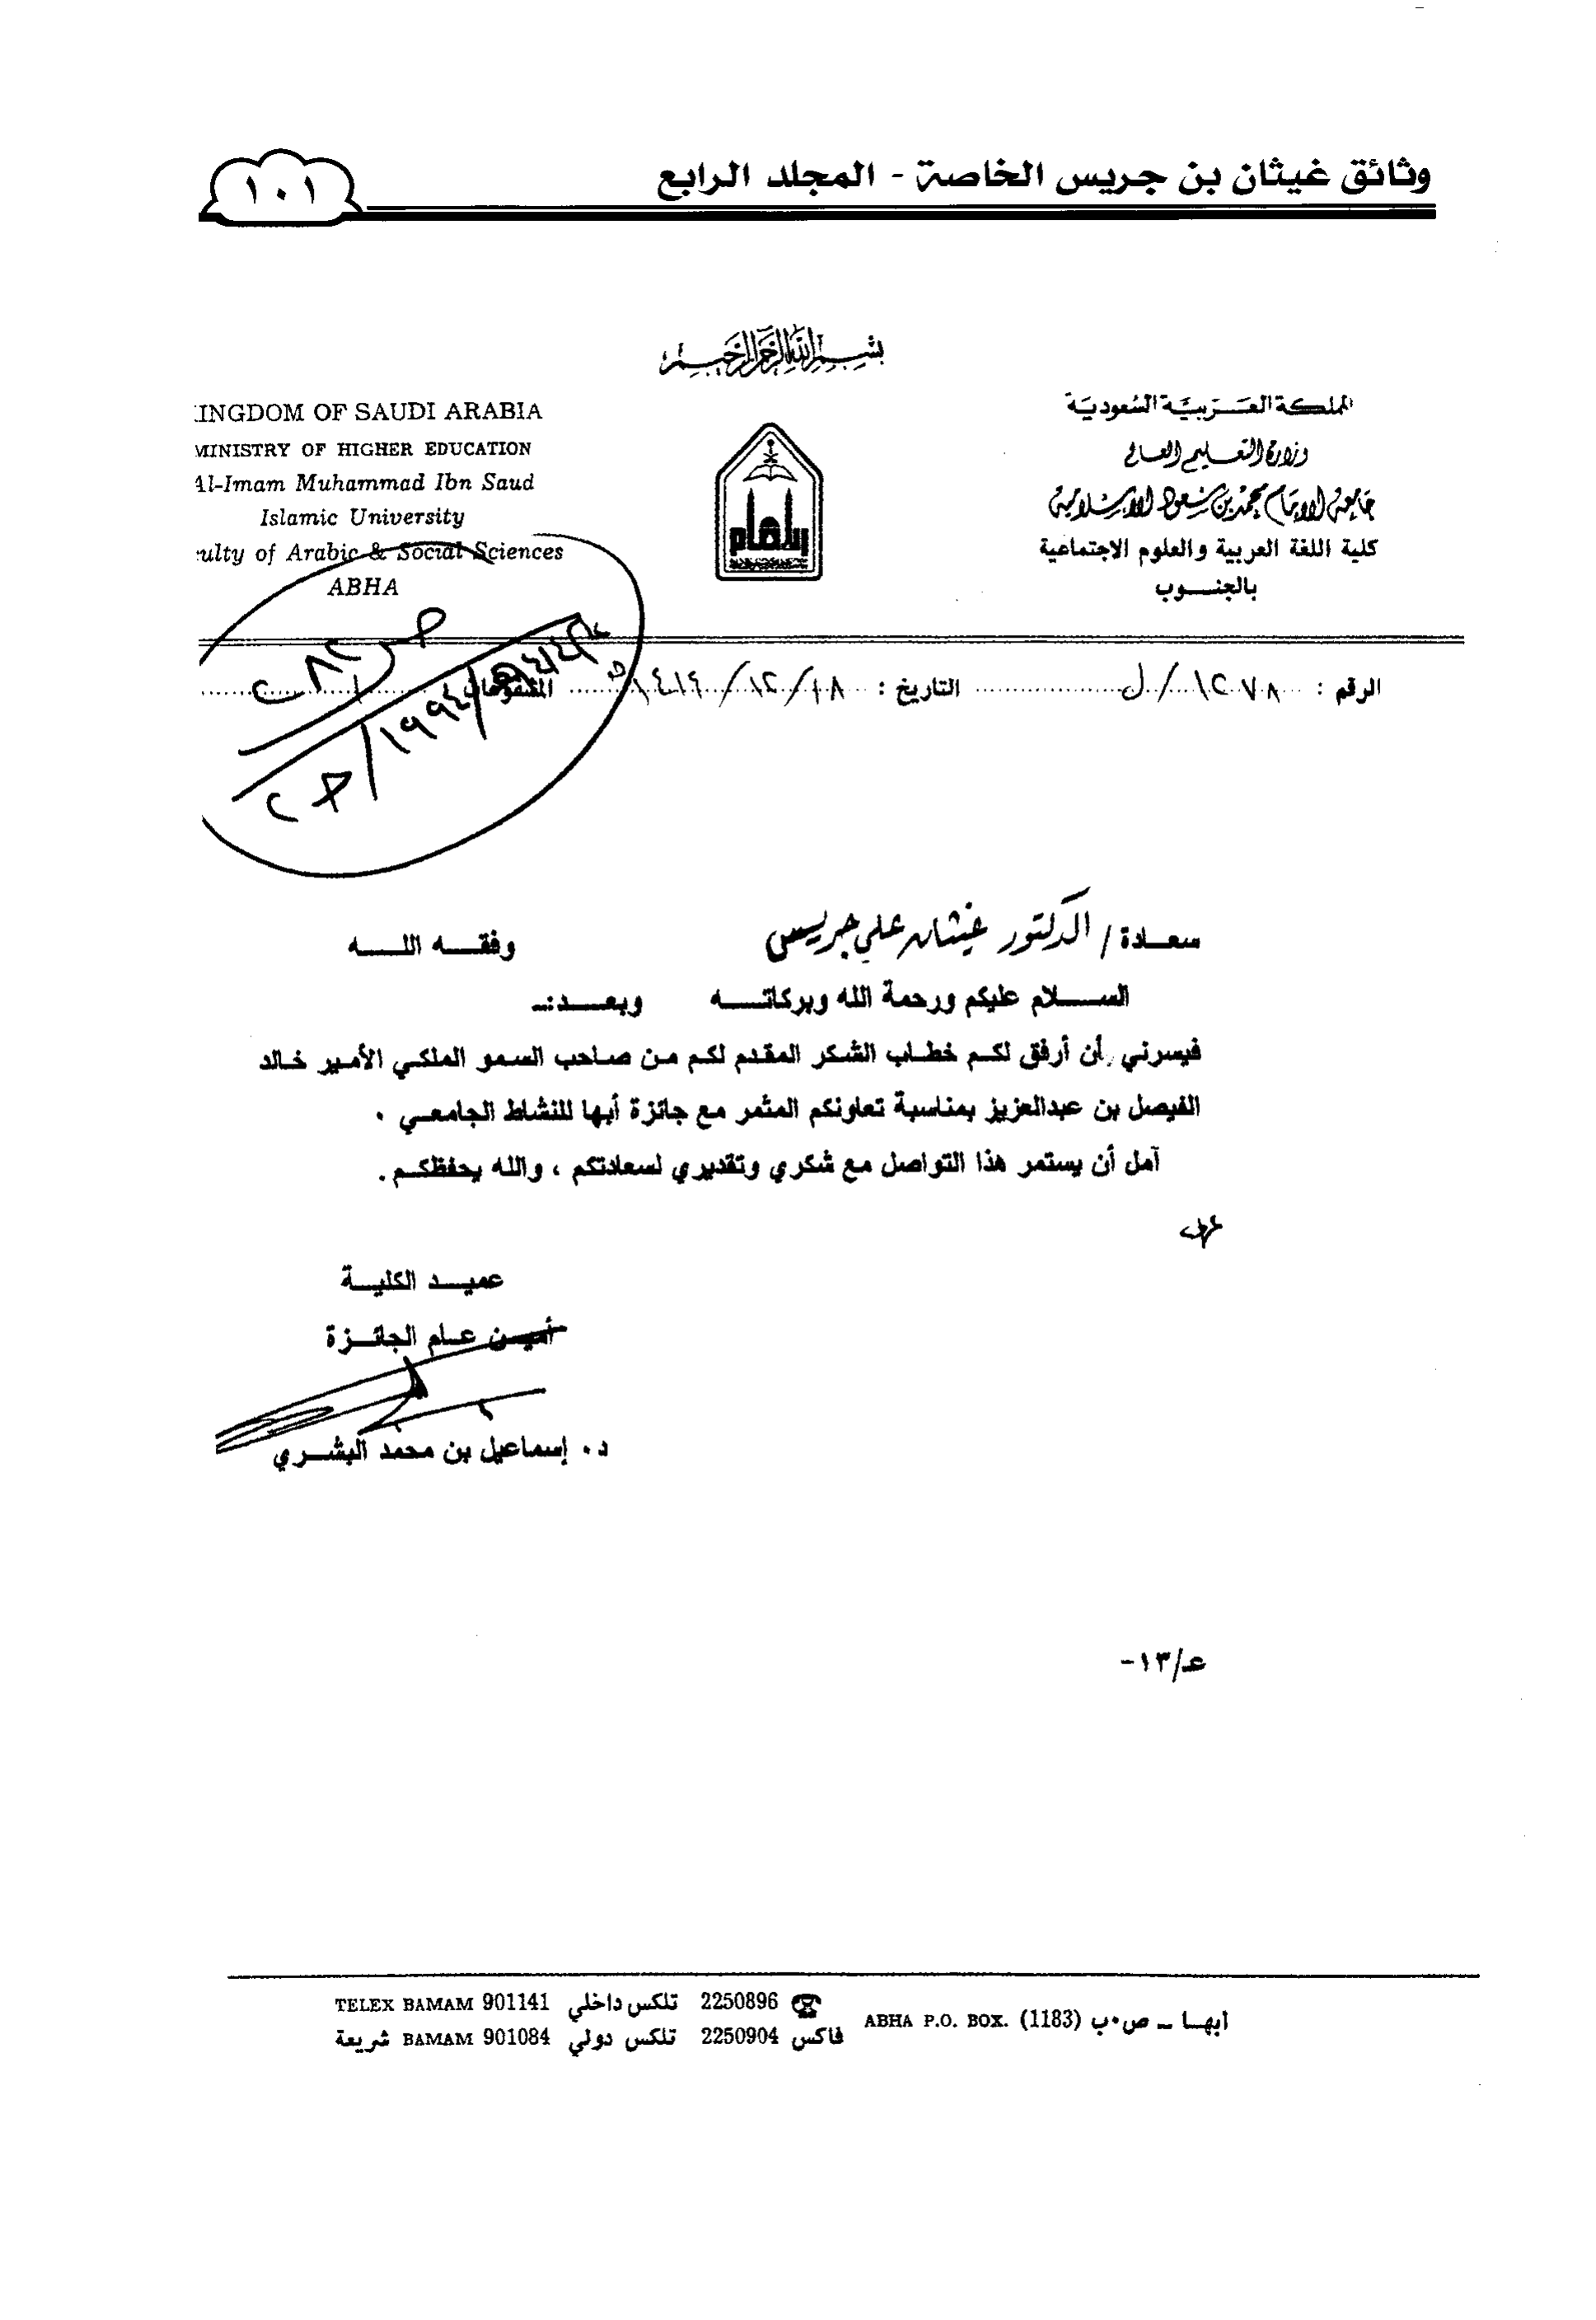 وثائق غيثان بن جريس الخاصة - المجلد الرابع
١٠١
بسم الله الرحمن الرحيم
المملكة العربية السعودية
وزارة التعليم العالي
جامعة الإمام محمد بن سعود الإسلامية
كلية اللغة العربية والعلوم الاجتماعية
بالجنوب
INGDOM OF SAUDI ARABIA
MINISTRY OF HIGHER EDUCATION
Al-Imam Muhammad Ibn Saud
Islamic University
ulty of Arabic & Social Sciences
ABHA
الرقم : ١٢٧٨/ل التاريخ : ١٨/١٢/١٤١٤هـ
سعادة / الدكتور غيثان علي جريس وفقه الله
السلام عليكم ورحمة الله وبركاته وبعد:ـ
فيسرني أن أرفق لكم خطاب الشكر المقدم لكم من صاحب السمو الملكي الأمير خالد
الفيصل بن عبدالعزيز بمناسبة تعاونكم المثمر مع جائزة أبها للنشاط الجامعي ٠
آمل أن يستمر هذا التواصل مع شكري وتقديري لسعادتكم ، والله يحفظكم .
عميد الكلية
أمين عام الجائزة
د ٠ إسماعيل بن محمد البشري
عـ/١٣-
ابها ـ ص٠ب (1183) ABHA P.O. BOX.
☎ 2250896 تلكس داخلي TELEX BAMAM 901141
فاكس 2250904 تلكس دولي BAMAM 901084 شريعة